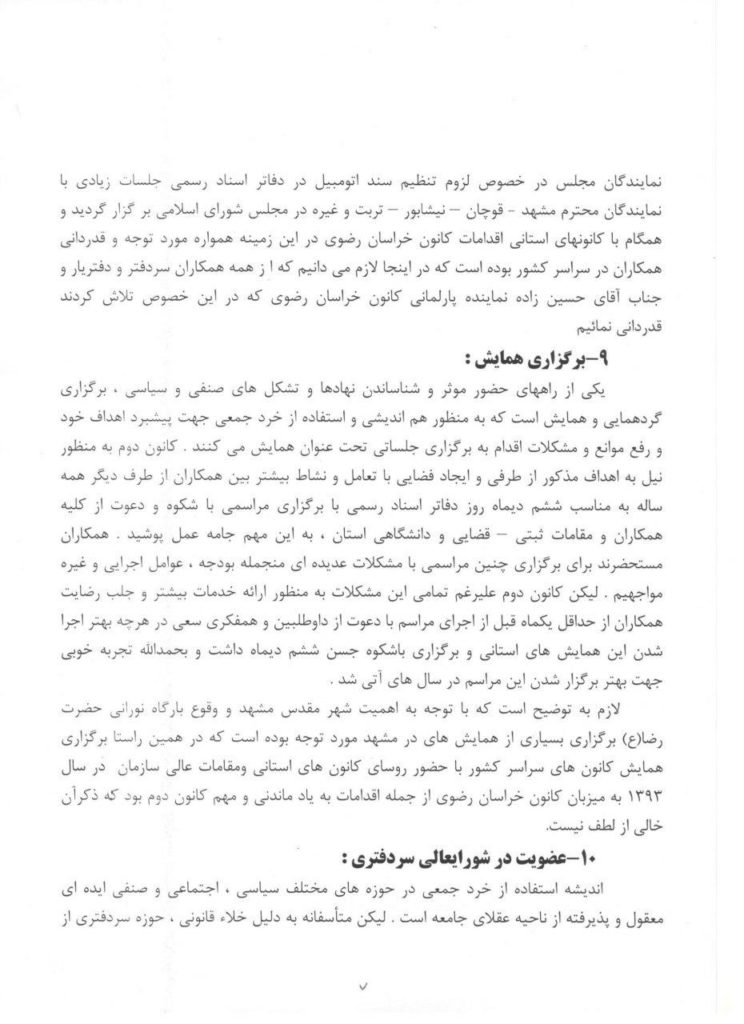 نمایندگان مجلس در خصوص لزوم تنظیم سند اتومبیل در دفاتر اسناد رسمی جلسات زیادی با
نمایندگان محترم مشهد - قوچان – نیشابور – تربت و غیره در مجلس شورای اسلامی بر گزار گردید و
همگام با کانونهای استانی اقدامات کانون خراسان رضوی در این زمینه همواره مورد توجه و قدردانی
همکاران در سراسر کشور بوده است که در اینجا لازم می دانیم که ا ز همه همکاران سردفتر و دفتریار و
جناب آقای حسین زاده نماینده پارلمانی کانون خراسان رضوی که در این خصوص تلاش کردند
قدردانی نمائیم
۹–برگزاری همایش :
یکی از راههای حضور موثر و شناساندن نهادها و تشکل های صنفی و سیاسی ، برگزاری
گردهمایی و همایش است که به منظور هم اندیشی و استفاده از خرد جمعی جهت پیشبرد اهداف خود
و رفع موانع و مشکلات اقدام به برگزاری جلساتی تحت عنوان همایش می کنند . کانون دوم به منظور
نیل به اهداف مذکور از طرفی و ایجاد فضایی با تعامل و نشاط بیشتر بین همکاران از طرف دیگر همه
ساله به مناسب ششم دیماه روز دفاتر اسناد رسمی با برگزاری مراسمی با شکوه و دعوت از کلیه
همکاران و مقامات ثبتی – قضایی و دانشگاهی استان ، به این مهم جامه عمل پوشید . همکاران
مستحضرند برای برگزاری چنین مراسمی با مشکلات عدیده ای منجمله بودجه ، عوامل اجرایی و غیره
مواجهیم . لیکن کانون دوم علیرغم تمامی این مشکلات به منظور ارائه خدمات بیشتر و جلب رضایت
همکاران از حداقل یکماه قبل از اجرای مراسم با دعوت از داوطلبین و همفکری سعی در هرچه بهتر اجرا
شدن این همایش های استانی و برگزاری باشکوه جسن ششم دیماه داشت و بحمدالله تجربه خوبی
جهت بهتر برگزار شدن این مراسم در سال های آتی شد .
لازم به توضیح است که با توجه به اهمیت شهر مقدس مشهد و وقوع بارگاه نورانی حضرت
رضا(ع) برگزاری بسیاری از همایش های در مشهد مورد توجه بوده است که در همین راستا برگزاری
همایش کانون های سراسر کشور با حضور روسای کانون های استانی ومقامات عالی سازمان در سال
۱۳۹۳ به میزبان کانون خراسان رضوی از جمله اقدامات به یاد ماندنی و مهم کانون دوم بود که ذکرآن
خالی از لطف نیست.
۱۰–عضویت در شورایعالی سردفتری :
اندیشه استفاده از خرد جمعی در حوزه های مختلف سیاسی ، اجتماعی و صنفی ایده ای
معقول و پذیرفته از ناحیه عقلای جامعه است . لیکن متأسفانه به دلیل خلاء قانونی ، حوزه سردفتری از
۷